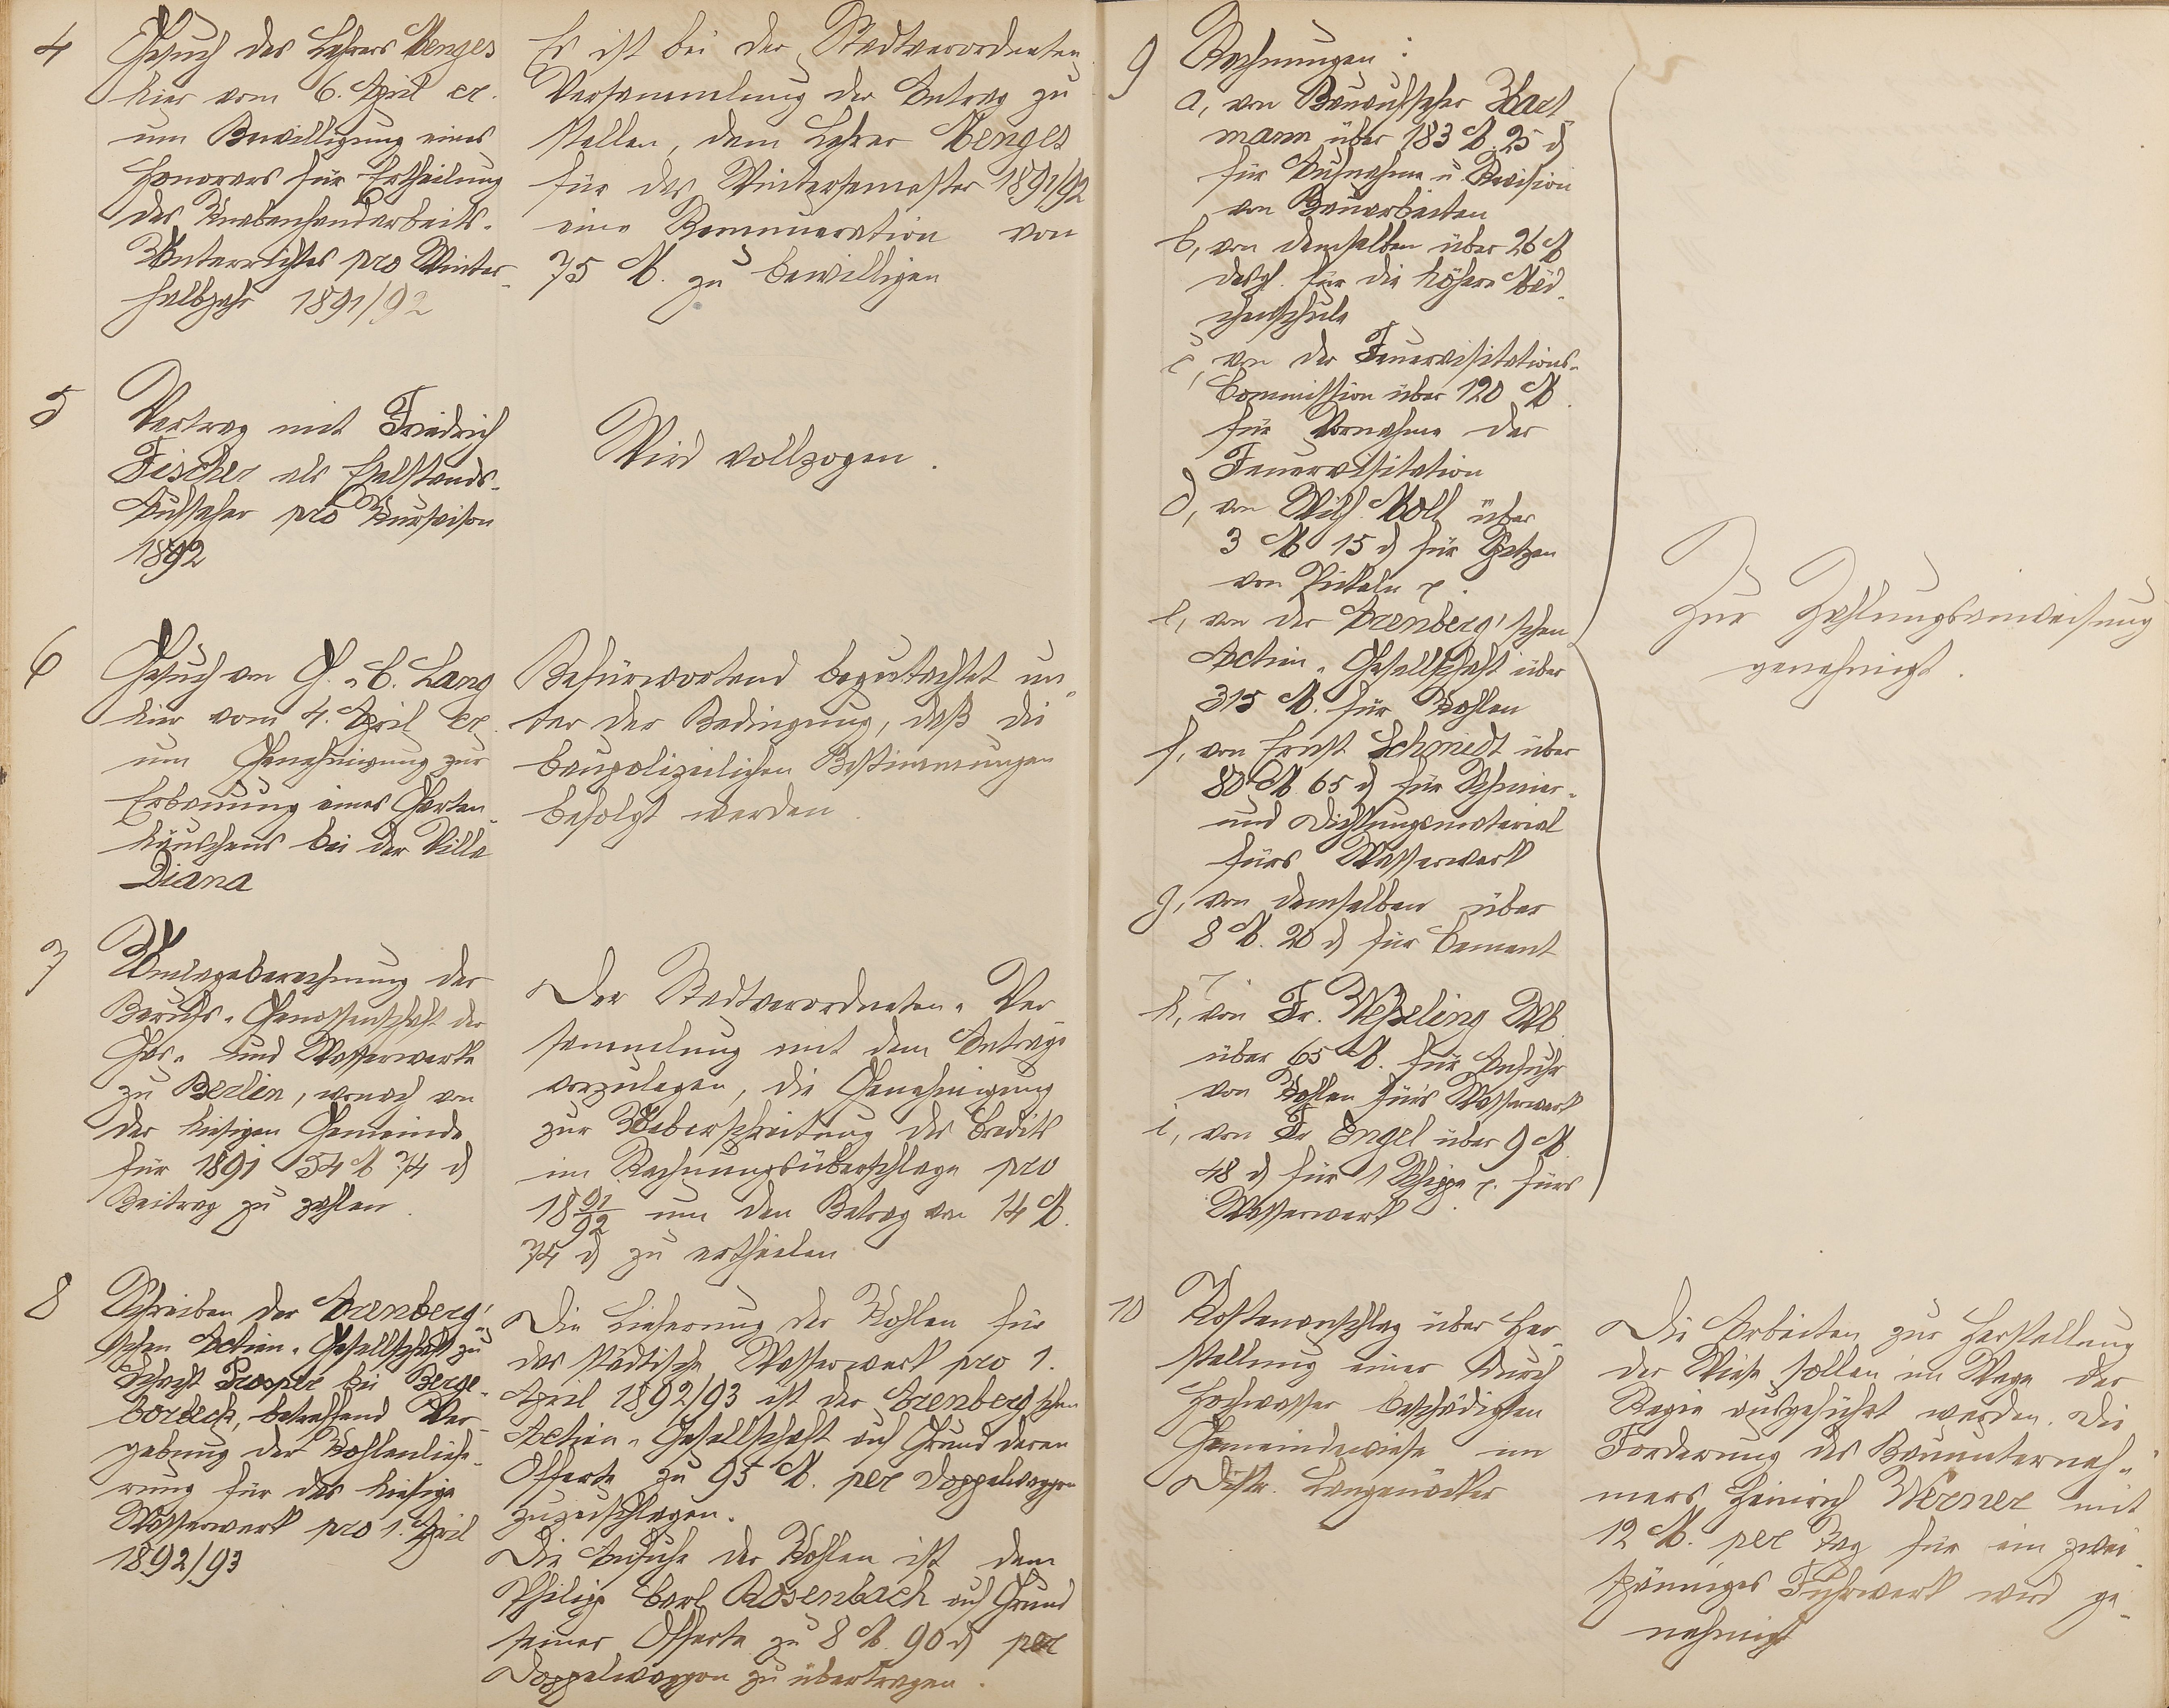 4
Gesuch des Lehrers Menges
hier vom 6. April cr.
um Bewilligung eines
Honorars für Ertheilung
des Knabenhandarbeits-
Unterrichtes pro Winter-
halbjahr 1891/92
Es ist bei der Stadtverordneten
Versammlung der Antrag zu
stellen, dem Lehrer Menges
für das Wintersemester 1891/92
eine Remuneration von
75 M. zu bewilligen
5
Vertrag mit Friedrich
Fischer als Eselstands-
Aufseher pro Kursaison
1892
Wird vollzogen.
6
Gesuch von G. C. Lang
hier vom 4. April cr.
um Genehmigung zur
Erbauung eines Garten-
häuschens bei der Villa
Diana
Befürwortend begutachtet un-
ter der Bedingung, daß die
baupolizeilichen Bestimmungen
befolgt werden.
7
Umlageberechnung der
Berufs-Genossenschaft der
Gas- und Wasserwerke
zu Berlin, wonach von
der hiesigen Gemeinde
für 1891 54 M 74 d
Beitrag zu zahlen.
Der Stadtverordneten-Ver
sammlung mit dem Antrage
vorzulegen, die Genehmigung
zur Ueberschreitung des Credits
im Rechnungsüberschlage pro
18 91/92 um den Betrag von 14 M.
74 d zu ertheilen
8
Schreiben der Arenberg'-
schen Actien-Gesellschaft zu
Schacht Prosper bei Berge-
borbeck, betreffend Ver-
gebung der Kohlenliefe-
rung für das hiesige
Wasserwerk pro 1. April
1892/93
Die Lieferung der Kohlen für
das städtische Wasserwerk pro 1.
April 1892/93 ist der Arenberg'schen
Actien-Gesellschaft auf Grund deren
Offerte zu 95 M. per Doppelwaggon
zuzuschlagen.
Die Anfuhr der Kohlen ist dem
Philipp Carl Rosenbach auf Grund
seiner Offerte zu 8 M. 90 d per
Doppelwaggon zu übertragen.
9
Rechnungen:
a, von Bauaufseher Hart-
mann über 183 M. 25 d
für Aufnahme u. Revision
von Bauarbeiten
b, von demselben über 26 M
desgl. für die höhere Mäd-
chenschule
c, von der Feuervisitations-
Commission über 120 M.
für Vornahme der
Feuervisitation
d, von Wilh. Moll über
3 M 15 d für
von Pickeln p.
e, von der Arenberg'schen
Actien-Gesellschaft über
315 M. für Kohlen
f, von Ernst Schmidt über
80 M 65 d für Schmier-
und Dichtungsmaterial
fürs Wasserwerk
g, von demselben über
8 M. 20 d für Cement
h, von Fr. Weßeling Wb.
über 65 M. für Anfuhr
von Kohlen für's Wasserwerk
i, von Fr Engel über 9 M.
48 d für 1 Schippe p. fürs
Wasserwerk
Zur Zahlungsanweisung
genehmigt.
10
Kostenanschlag über Her-
stellung einer durch
Hochwasser beschädigten
Gemeindewiese im
Distr. Langenäcker
Die Arbeiten zur Herstellung
der Wiese sollen im Wege der
Regie ausgeführt werden. Die
Forderung des Bauunterneh-
mers Heinrich Werner mit
12 M. per Tag für ein zwei-
spänniges Fuhrwerk wird ge-
nehmigt